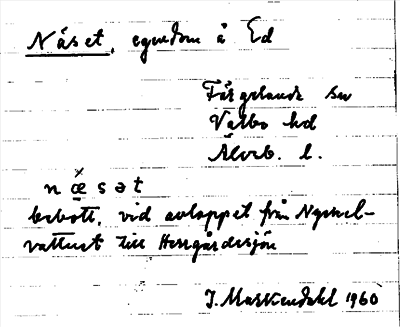 Näset, egendom å Ed
Färgelanda sn
Valbo hd
Älvsb. l.
n æ s ə t
bebott, vid avloppet från Nyckel-
vattnet till Herrgårdssjön
J. Markendahl 1960